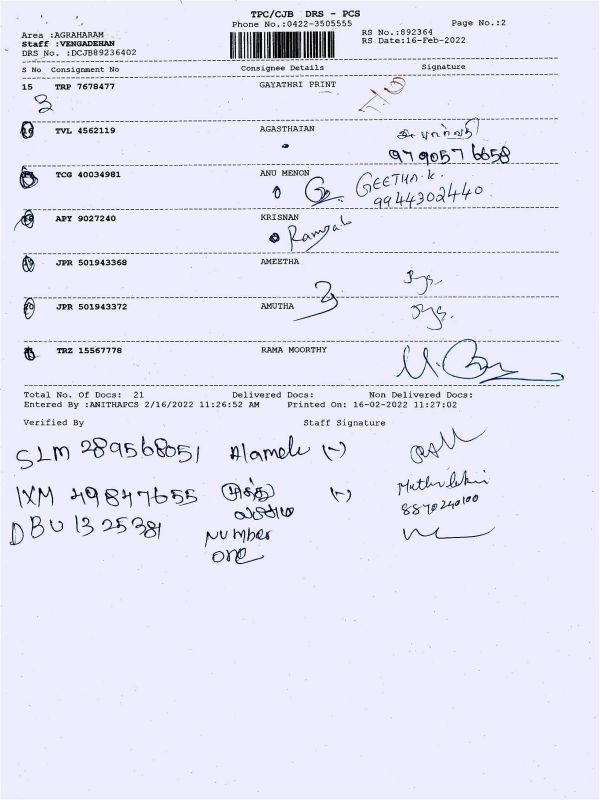 TPC/CJB DRS - PCS
Phone No.:0422-3505555
Page No.:2
Area :AGRAHARAM
RS No.:892364
Staff :VENGADEHAN
RS Date:16-Feb-2022
DRS No. :DCJB89236402
S No Consignment No Consignee Details Signature
15 TRP 7678477 GAYATHRI PRINT
3
16 TVL 4562119 AGASTHAIAN
9790576658
TCG 40034981 ANU MENON GEETHA.K.
9944302440
APY 9027240 KRISNAN
19 JPR 501943368 AMEETHA
20 JPR 501943372 AMUTHA
TRZ 15567778 RAMA MOORTHY
Total No. Of Docs: 21 Delivered Docs: Non Delivered Docs:
Entered By :ANITHAPCS 2/16/2022 11:26:52 AM Printed On: 16-02-2022 11:27:02
Verified By Staff Signature
SLM 289568051 Alamelu (-)
IXM 49847655 முத்து (-)
லக்ஷமி
8870240100
DBU 1325381 Number
one